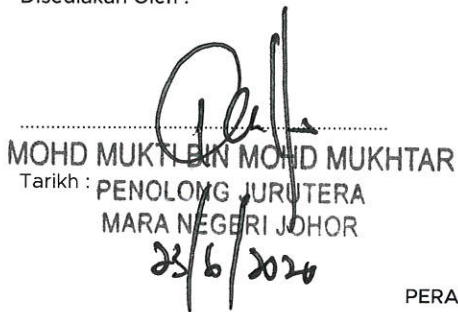 Disediakan Oleh :
MOHD MUKTI BIN MOHD MUKHTAR
Tarikh : PENOLONG JURUTERA
MARA NEGERI JOHOR
23/6/2026
PERA